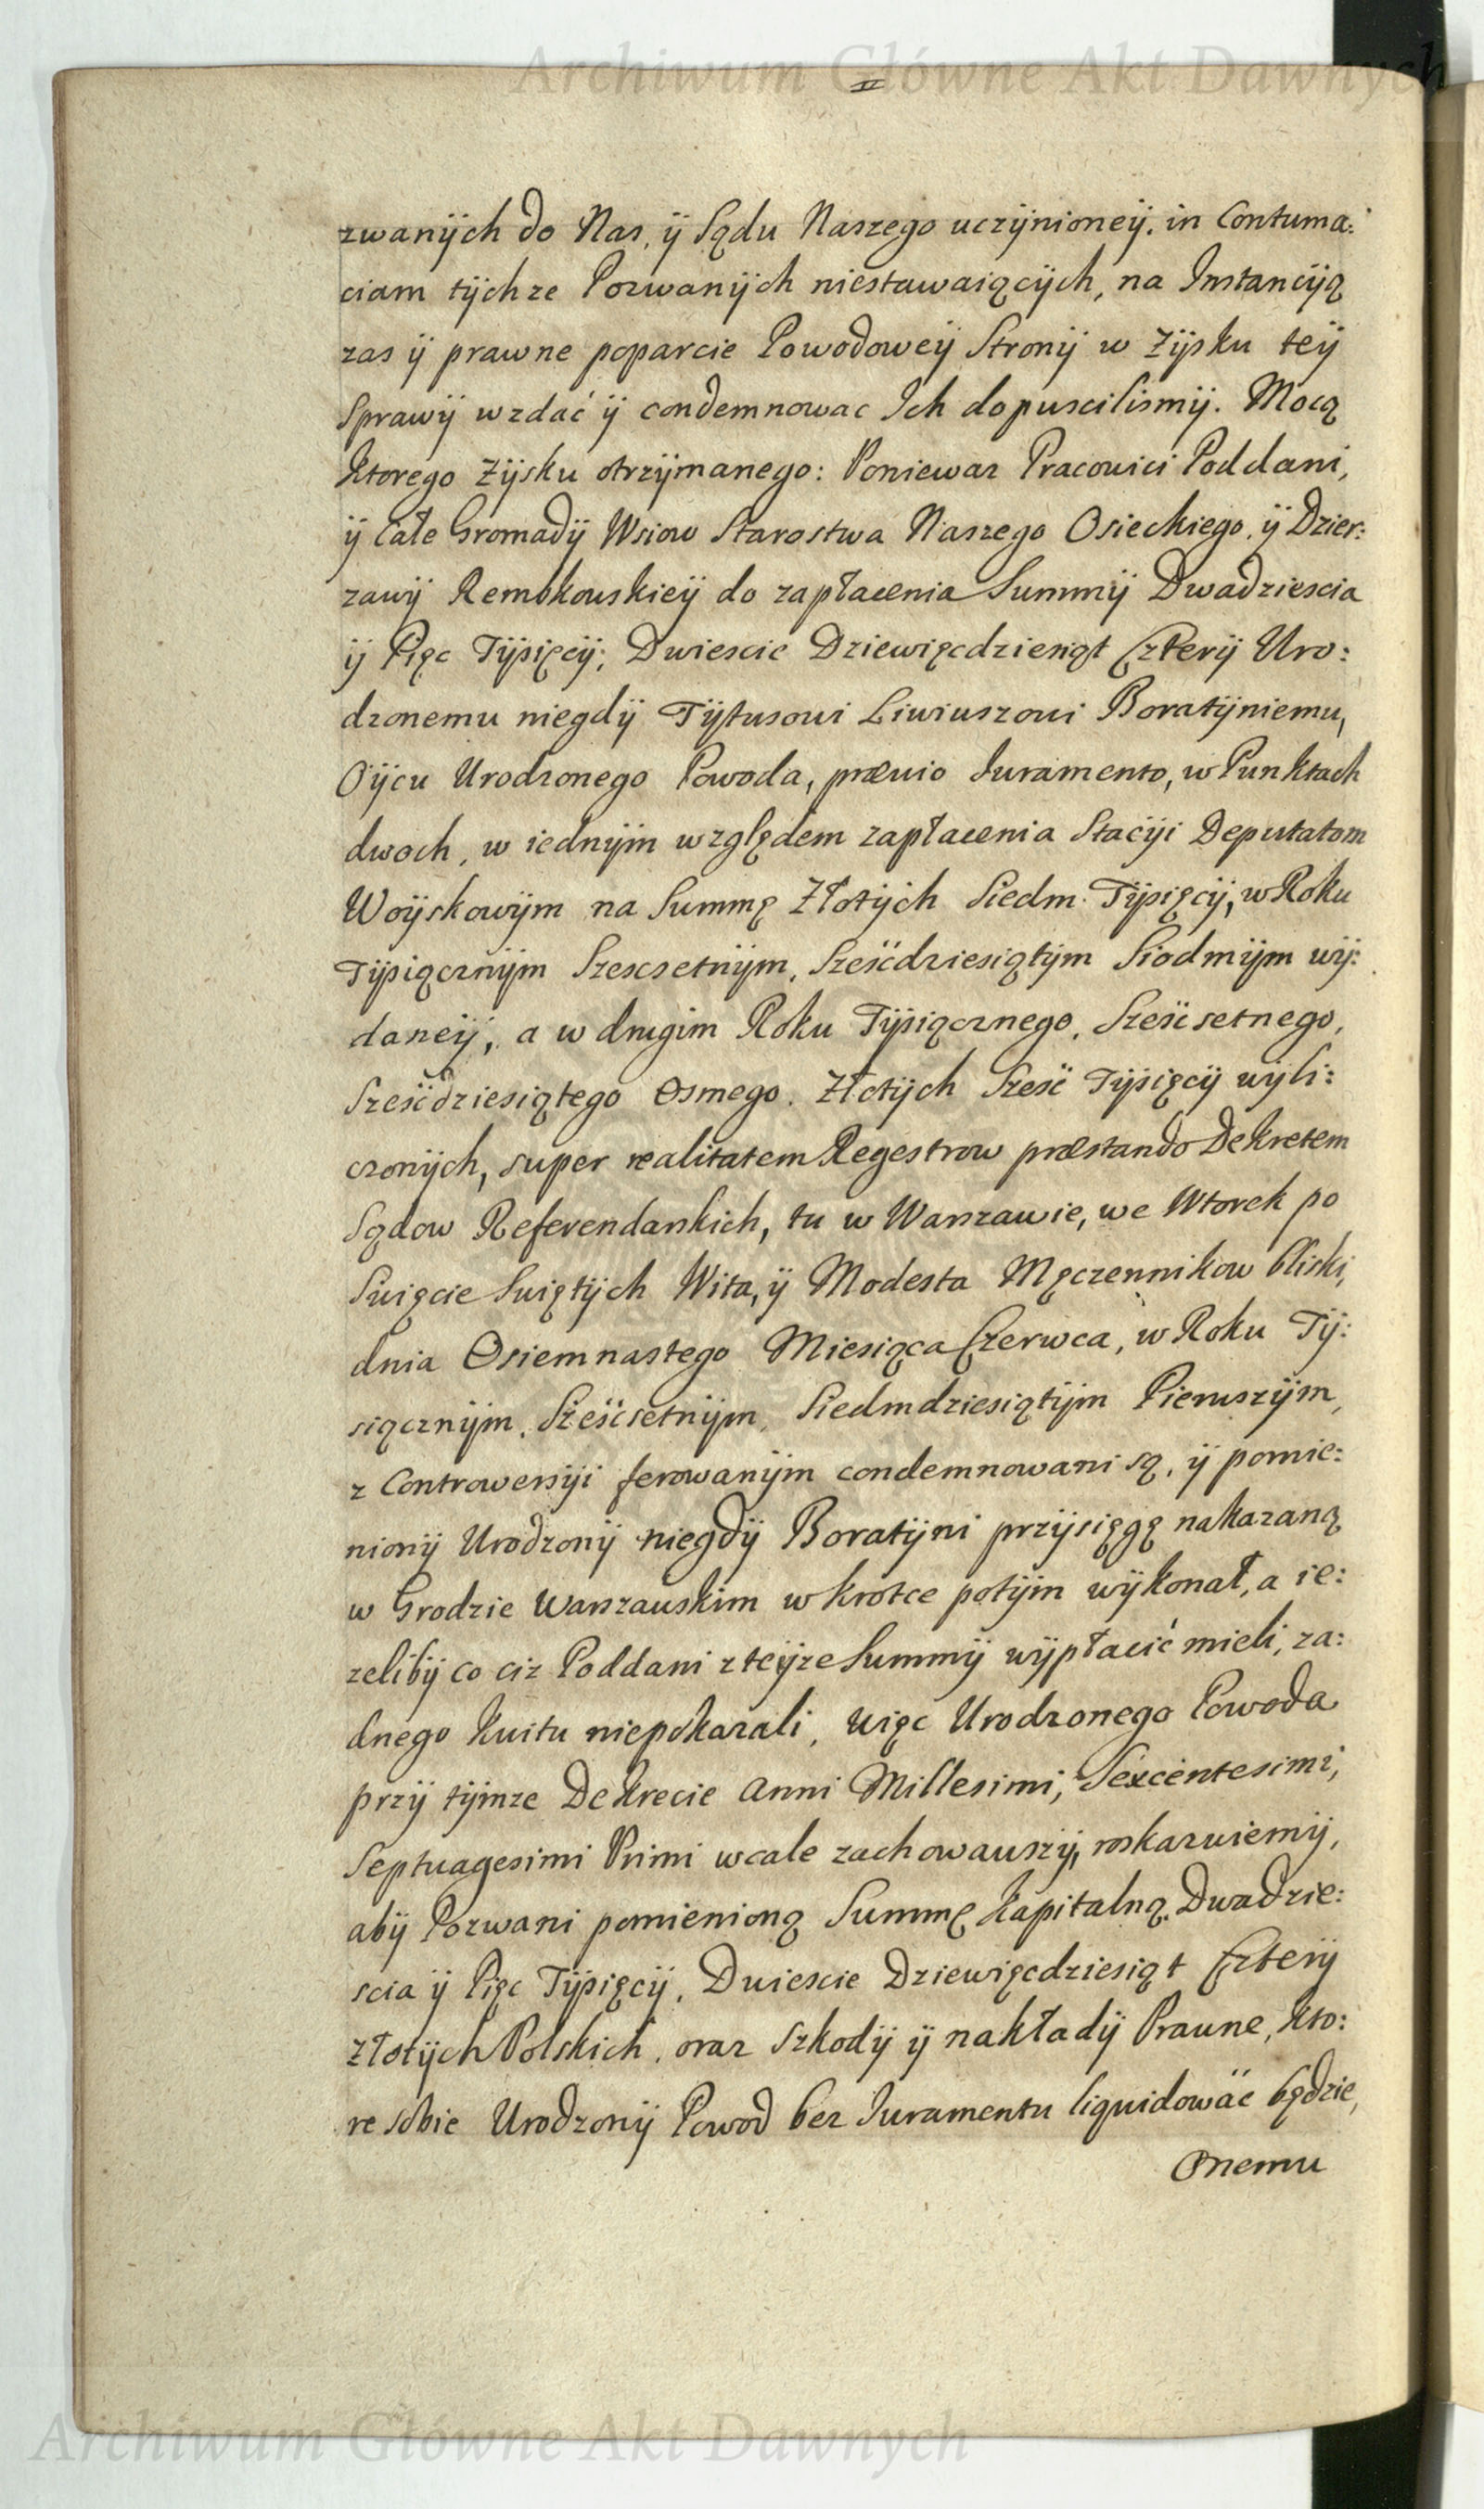 Archiwum Główne Akt Dawnych
II
zwanÿch do Nas, ÿ Sądu Naszego uczÿnioneÿ. in Contuma:
ciam tÿchze Pozwanÿch niestawaiącÿch, na Instancÿą
zas ÿ prawne poparcie Powodoweÿ Stronÿ w Zÿsku teÿ
Sprawÿ wzdać ÿ condemnowac Ich dopuscilismÿ. Mocą
ktorego Zÿsku otrzÿmanego: Poniewaz Pracowici Poddani,
ÿ Całe Gromadÿ Wsiow Starostwa Naszego Osieckiego, ÿ Dzier:
zawÿ Rembkowskieÿ do zapłacenia Summÿ Dwadziescia
ÿ Pięc Tÿsięcÿ, Dwiescie Dziewięcdziesiąt Czterÿ Uro:
dzonemu niegdÿ Tÿtusowi Liwiuszowi Boratÿniemu,
Oÿcu Urodzonego Powoda, prævio Juramento, w Punktach
dwoch, w iednÿm względem zapłacenia Stacÿi Deputatom
Woÿskowÿm na Summę Złotÿch Siedm Tÿsięcÿ, w Roku
Tÿsiącznÿm Szescsetnÿm, Sześćdziesiątÿm Siodmÿm wÿ:
daneÿ, a w drugim Roku Tÿsiącznego, Sześćsetnego,
Sześćdziesiątego Osmego. Złotÿch Sześć Tÿsięcÿ wÿli:
czonÿch, super realitatem Regestrow præstando Dekretem
Sądow Referendarskich, tu w Warszawie, we Wtorek po
Swięcie Swiętÿch Wita, ÿ Modesta Męczennikow bliski,
dnia Osiemnastego Miesiąca Czerwca, w Roku Tÿ:
siącznÿm, Sześćsetnÿm, Siedmdziesiątÿm Pierwszÿm,
z Controwersÿi ferowanÿm condemnowani są, ÿ pomie:
nionÿ Urodzonÿ niegdÿ Boratÿni przÿsięgę nakazaną
w Grodzie Warszawskim wkrotce potÿm wÿkonał, a ie:
zelibÿ co ciz Poddani z teÿze Summÿ wÿpłacić mieli, za:
dnego kwitu niepokazali, więc Urodzonego Powoda
przÿ tÿmze Dekrecie Anni Millesimi, Sexcentesimi,
Septuagesimi Primi wcale zachowawszÿ, roskazuiemÿ,
abÿ Pozwani pomienioną Summę Kapitalną Dwadzie:
scia ÿ Pięc Tÿsięcÿ, Dwiescie Dziewięcdziesiąt Czterÿ
Złotÿch Polskich, oraz Szkodÿ ÿ nakładÿ Prawne, kto:
re sobie Urodzonÿ Powod bez Juramentu liquidowäc będzie,
Onemu
Archiwum Główne Akt Dawnych